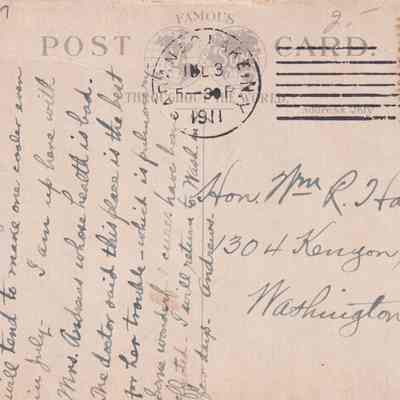 FAMOUS
POST CARD.
THROUGHOUT THE WORLD.
Address Only
JUL 3
5-30 P
1911
will tend to make one cooler even
in July. I am up here with
Mrs. Andrews whose health is bad.
The doctor said this place is the best
for her trouble - which is
Some wonderful cures have been
effected. I will return to Wash in
few days. Andrews.
Hon. Wm R. Ha
1304 Kenyon,
Washington